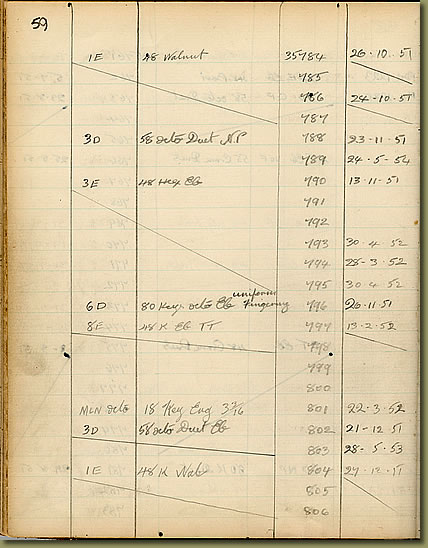 59
1E 48 Walnut 35784 26-10-51
785
786 24-10-51
787
3D 58 octo Duet N.P 788 23-11-51
789 24-5-54
3E 48 Hex Eb 790 13-11-51
791
792
793 30-4-52
794 28-3-52
795 30-4-52
uniform
6D 80 Key octo Eb Fingering 796 26-11-51
8E 48 K Eb TT 797 13-2-52
798
799
800
McN octo 18 Key Eng 801 22-3-52
3D 58 octo Duet Eb 802 21-12-51
803 28-5-53
1E 48 K 804 27-12-51
805
806